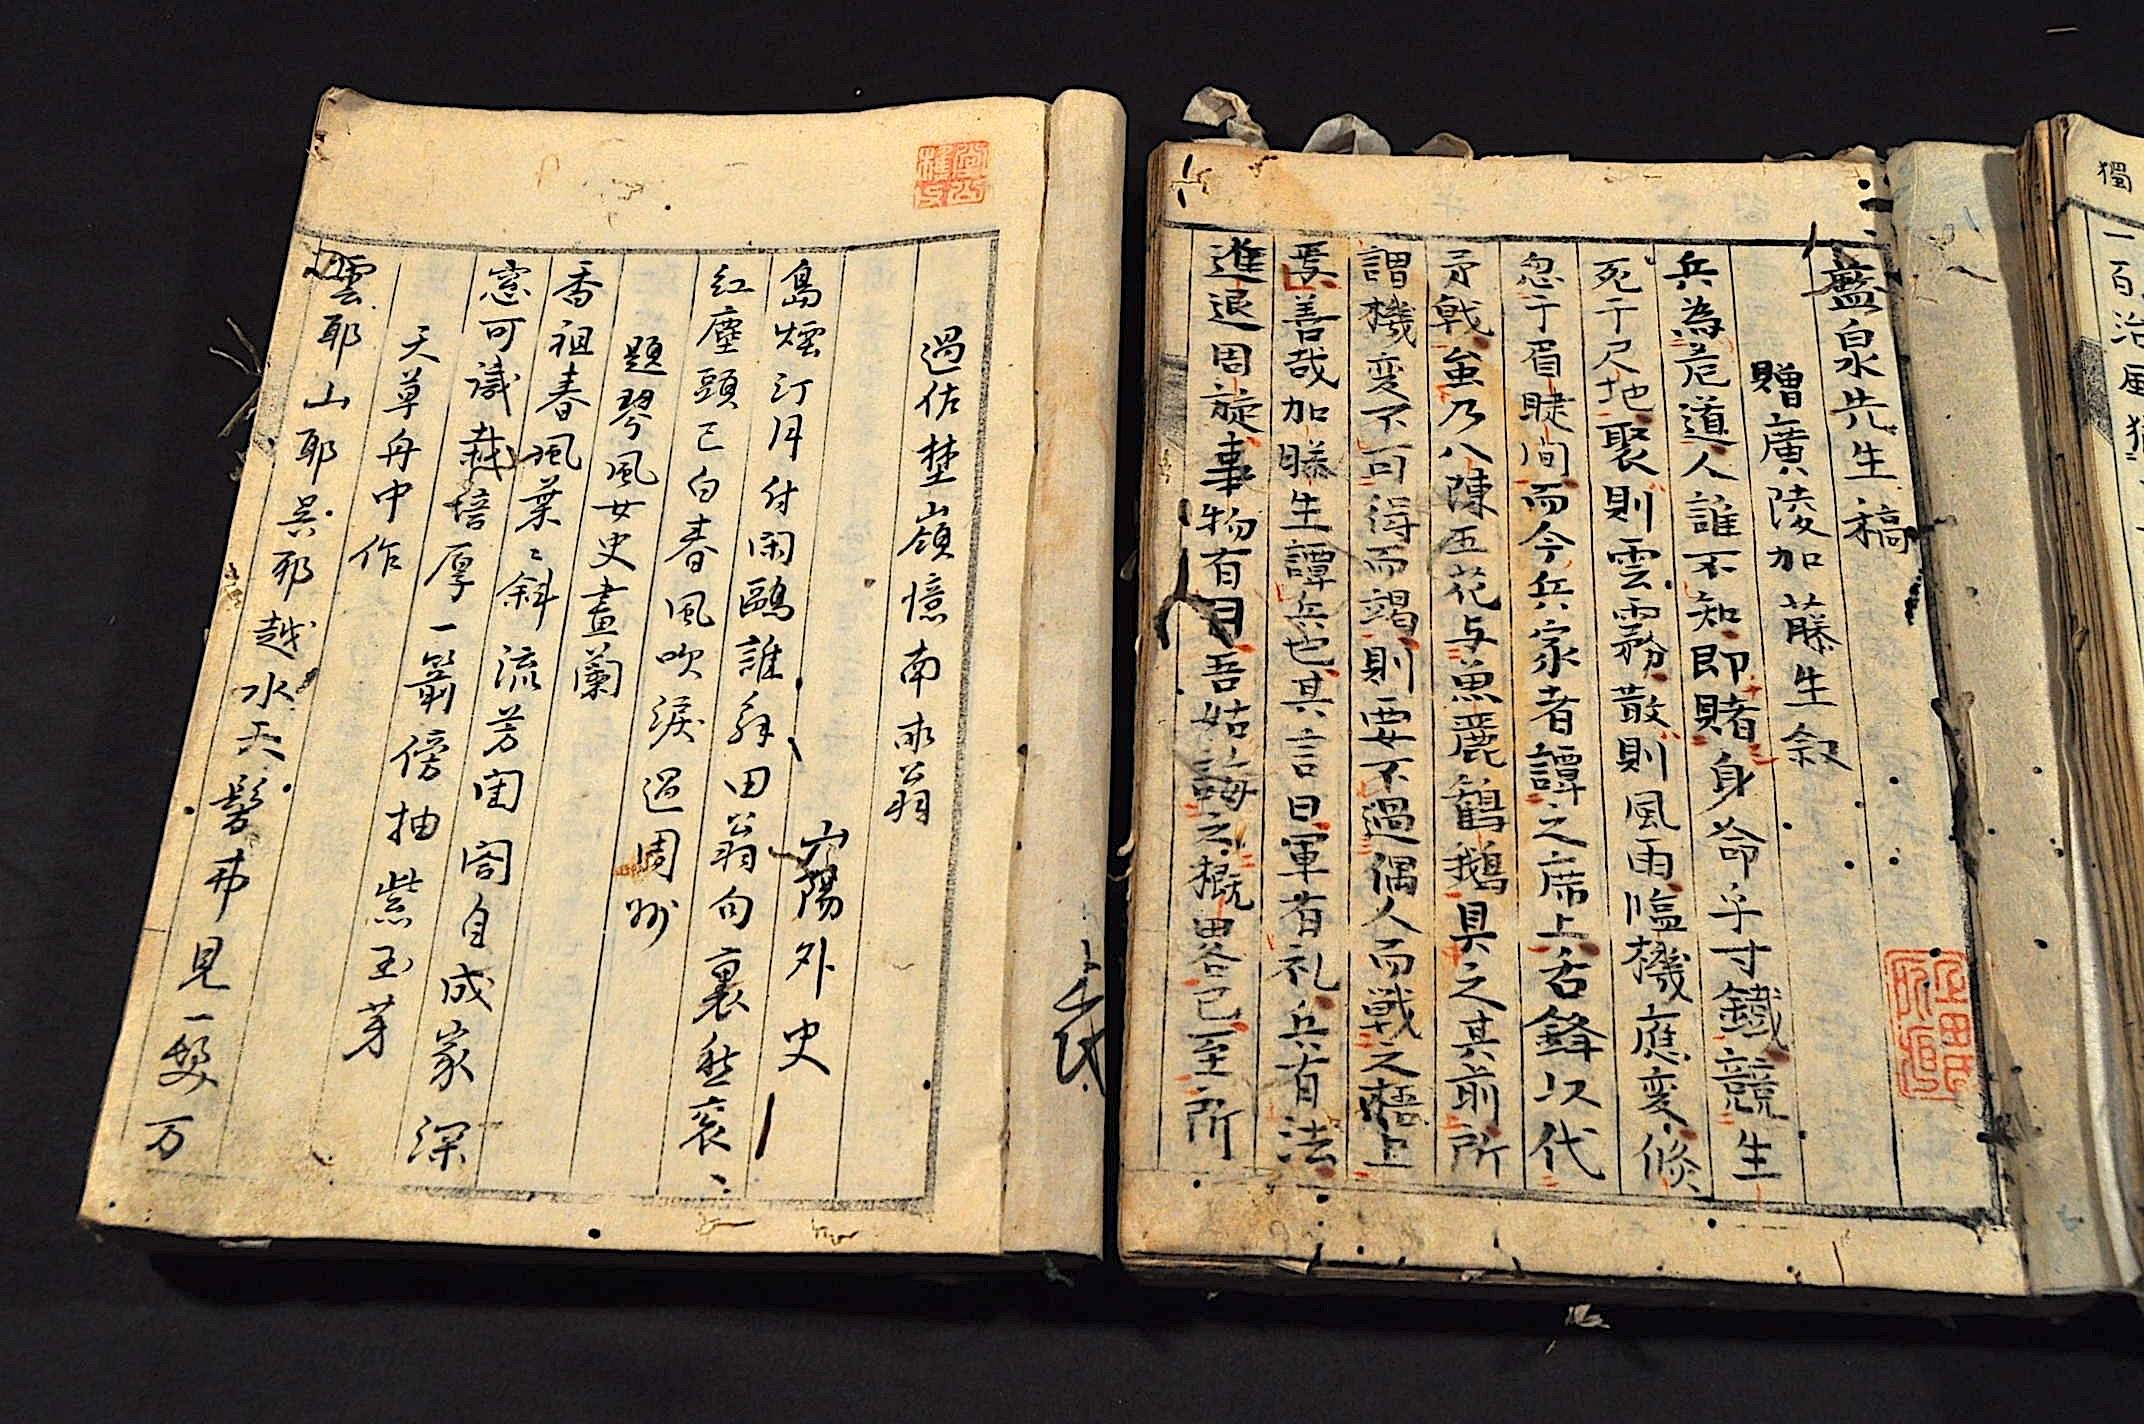 盬泉先生稿
贈廣陵加藤生叙
兵為危道人誰不知即賭身命乎寸鐵競生
死于尺地聚則雲霧散則風雨臨機應変倏
忽于眉睫间而今兵家者譚之席上舌鋒以代
矛戟金乃八陳五花与魚麗鶴鵝具之其前所
謂機変不可得而竭則要不過偶人而戦之梧上
焉善哉加藤生譚兵也其言曰軍有礼兵有法
進退周旋事物有
吾姑誨之概畧已至所
過佐埜嶺憶南氷翁
山陽外史
島煙汀月付闲鷗誰弔田翁句裏愁哀〻
紅塵頭已白春風吹淚過周州
題琴風女史畫蘭
香祖春風葉〻斜流芳闺閤自成家深
窓可識栽培厚一箭傍抽紫玉芽
天草舟中作
雲耶山耶呉耶越水天髣髴見一髮万
獨
一百治風